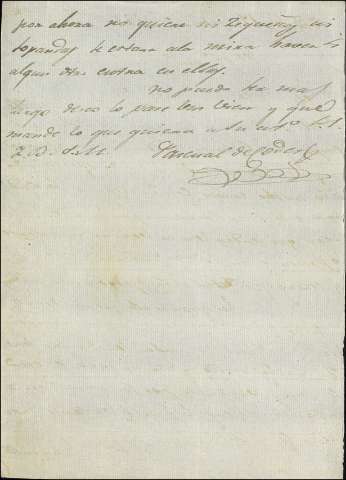 por ahora no quiere ni Pequeños ni
Grandes se estara ala mira haver si
algun dia entra en ellos.
no puedo ha mas
largo deseo lo pase bien y que
mande lo que quiera a su at.º S. S.
Q. B. S. M. Pascual de